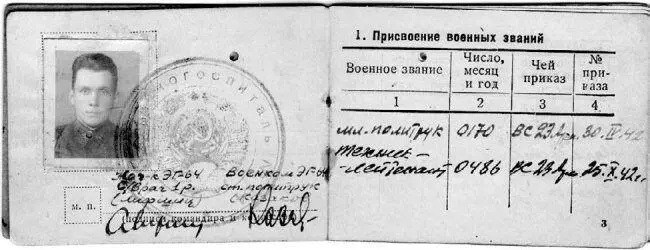 ГОСПИТАЛЬ
Нач. ЭГ-64 Военком ЭГ-64
в/врач 1 р. ст. политрук
м. п.
1. Присвоение военных званий
Военное звание
Число, месяц и год
Чей приказ
№ приказа
1 2 3 4
мл. политрук 0170 ВС 23 Арм. 30.IV.42
техник-
лейтенант 0486 ВС 23 Арм. 25.X.42 г.
3